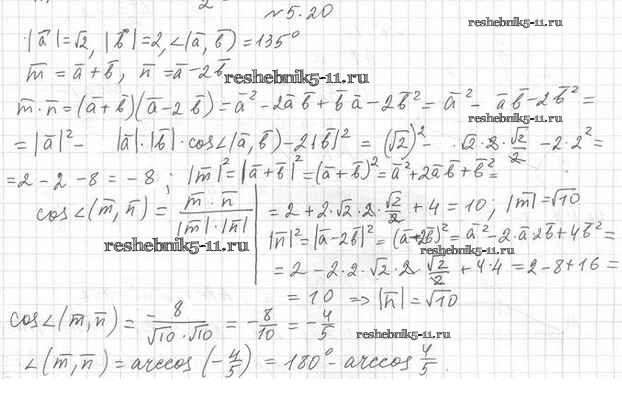 № 5.20
reshebnik5-11.ru
|a̅| = √2, |b̅| = 2, ∠(a̅, b̅) = 135°
m̅ = a̅ + b̅, n̅ = a̅ - 2b̅
reshebnik5-11.ru
m̅·n̅ = (a̅+b̅)(a̅-2b̅) = a̅² - 2a̅b̅ + b̅a̅ - 2b̅² = a̅² - a̅b̅ - 2b̅² =
reshebnik5-11.ru
= |a̅|² - |a̅|·|b̅|·cos∠(a̅, b̅) - 2|b̅|² = (√2)² - √2·2·√2/2 - 2·2² =
= 2 - 2 - 8 = -8; |m̅|² = |a̅+b̅|² = (a̅+b̅)² = a̅² + 2a̅b̅ + b̅² =
cos∠(m̅, n̅) = m̅·n̅ / |m̅|·|n̅|
= 2 + 2·√2·2·√2/2 + 4 = 10; |m̅| = √10
reshebnik5-11.ru
|n̅|² = |a̅-2b̅|² = (a̅+2b̅)² = a̅² - 2·a̅·2b̅ + 4b̅² =
= 2 - 2·2·√2·2·√2/2 + 4·4 = 2 - 8 + 16 =
= 10 ⇒ |n̅| = √10
cos∠(m̅, n̅) = -8/√10·√10 = -8/10 = -4/5
reshebnik5-11.ru
∠(m̅, n̅) = arccos(-4/5) = 180° - arccos 4/5.
reshebnik5-11.ru